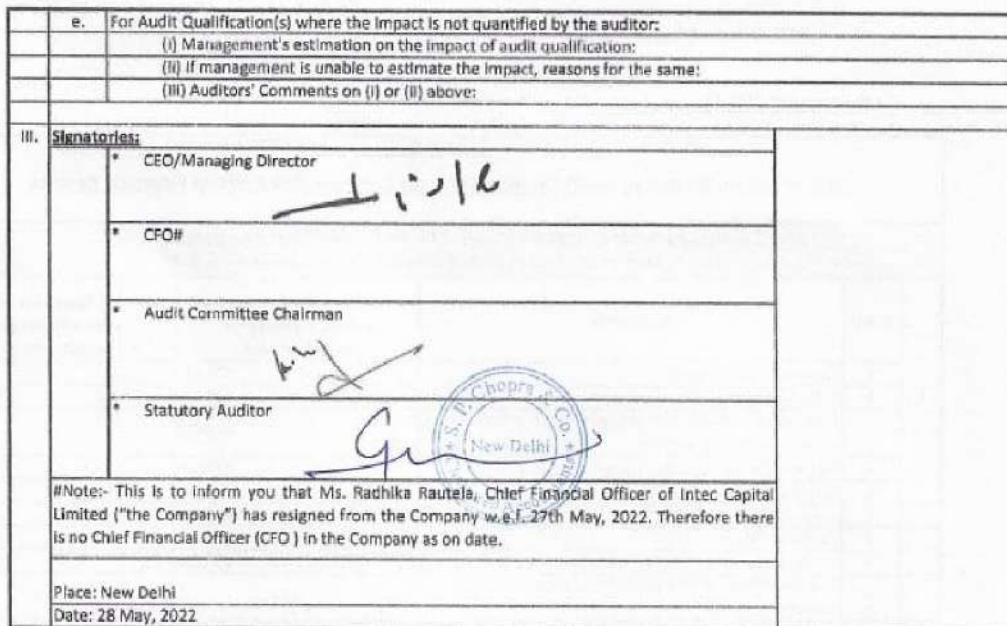 e. For Audit Qualification(s) where the impact is not quantified by the auditor:
(i) Management's estimation on the impact of audit qualification:
(ii) If management is unable to estimate the impact, reasons for the same:
(iii) Auditors' Comments on (i) or (ii) above:
III. Signatories:
* CEO/Managing Director
* CFO#
* Audit Committee Chairman
* Statutory Auditor
S. P. Chopra & Co.
New Delhi
Chartered Accountants
#Note:- This is to inform you that Ms. Radhika Rautela, Chief Financial Officer of Intec Capital
Limited ("the Company") has resigned from the Company w.e.f. 27th May, 2022. Therefore there
is no Chief Financial Officer (CFO ) in the Company as on date.
Place: New Delhi
Date: 28 May, 2022